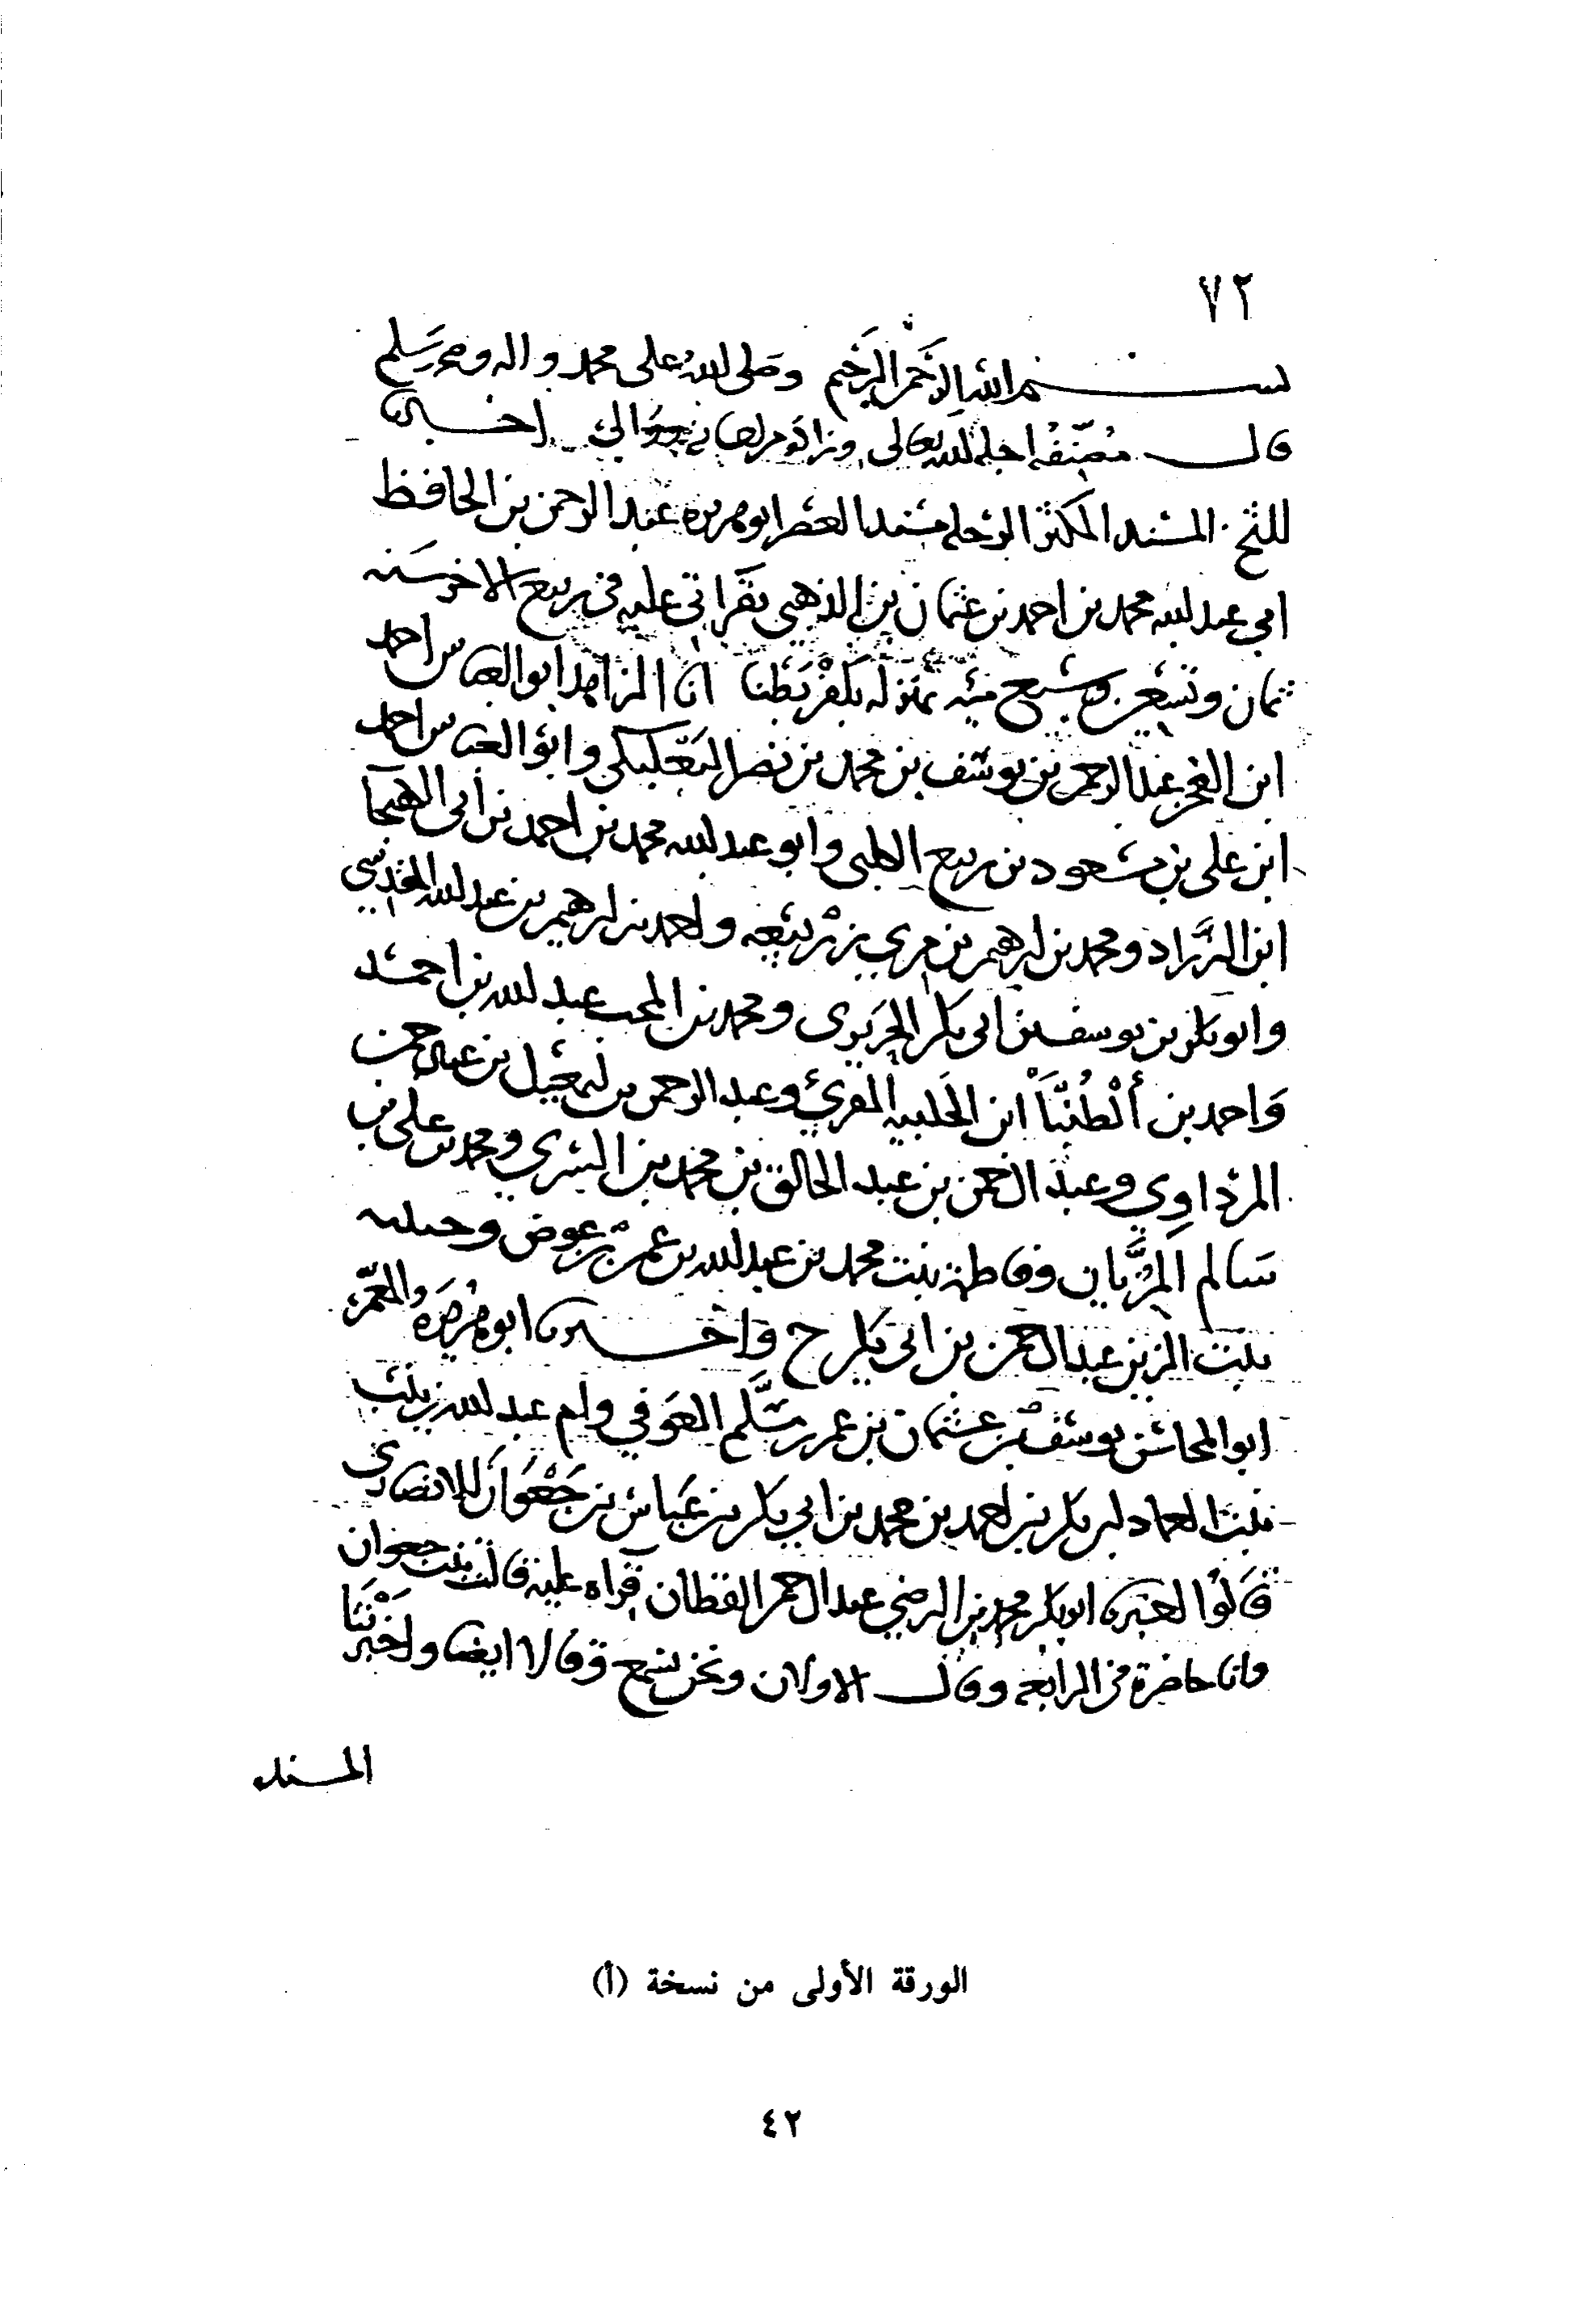 ٧٢
بسم الله الرحمن الرحيم وصلى الله على محمد واله وصحبه وسلم
قال مصنفه اجله الله تعالى اخبرنا
الشيخ المسند المكثر الرحله مسند العصر ابو هريره عبد الرحمن بن الحافظ
ابي عبد الله محمد بن احمد بن عثمان بن الذهبي بقراتي عليه في ربيع الاخر سنه
ثمان وتسعين وسبع مئه بمنزله بكفر بطنا انا الزاهد ابو العباس احمد
ابن الفخر عبد الرحمن بن يوسف بن محمد بن نصر البعلبكي وابو العباس احمد
ابن علي بن مسعود بن ربيع الكلبي وابو عبد الله محمد بن احمد بن ابي الهيجا
ابن الزراد ومحمد بن ابرهيم بن مري بن ربيعه واحمد بن ابرهيم بن عبد الله المقدسي
وابو بكر بن يوسف بن ابي بكر الحريري ومحمد بن المحب عبد الله بن احمد
واحمد بن ألطنبا ابن الحلبيه المقرئ وعبد الرحمن بن اسمعيل بن عبد الرحمن
المرداوي وعبد الرحمن بن عبد الخالق بن محمد بن السري ومحمد بن علي بن
سالم المزيان وفاطمة بنت محمد بن عبد الله بن عمر بن عوض وحبيبه
بنت الزين عبد الرحمن بن ابي بكر ح واخبرنا ابو هريره والمعمر
ابو المحاسن يوسف بن عثمان بن عمر بن مسلم العوفي وام عبد الله زينب
بنت العماد ابي بكر بن احمد بن محمد بن ابي بكر بن عباس بن جعوان الانصاري
قالوا اخبرنا ابو بكر محمد بن الرضي عبد الرحمن القطان قراه عليه قالت بنت جعوان
وانا حاضرة في الرابعه وقال الاولان ونحن نسمع ح وقالا ايضا واخبرتنا
المسند
الورقة الأولى من نسخة (أ)
٤٢